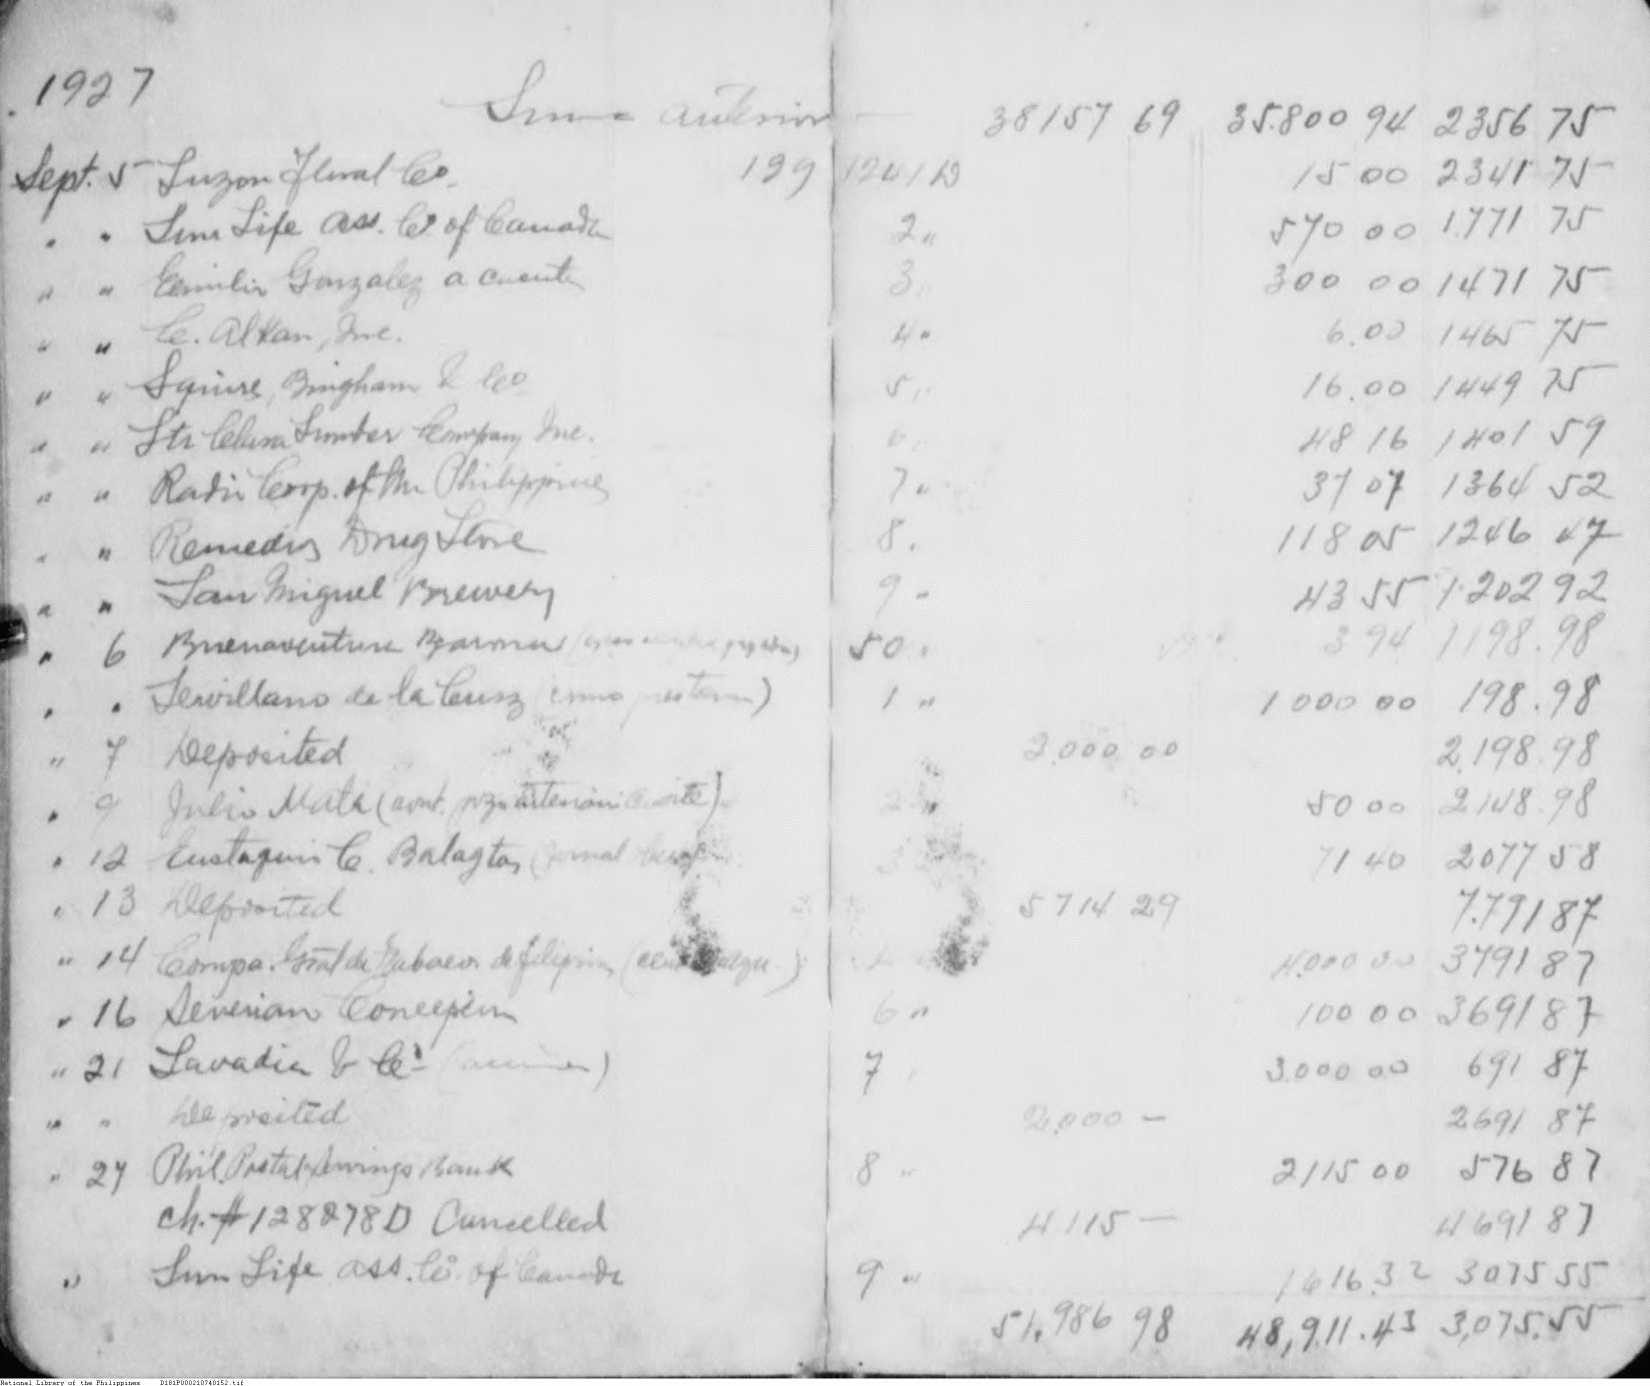 1927
Suma anterior — 38157 69 35.800 94 2356 75
Sept. 5 Luzon Floral Co. 129 1241 D 15 00 2341 75
" " Sun Life Ass. Co of Canada 2 " 570 00 1.771 75
" " Emilio Gonzalez a cuenta 3 " 300 00 1471 75
" " C. Alkan, Inc. 4 " 6.00 1465 75
" " Squires, Bingham & Co 5 " 16.00 1449 75
" " Sta Clara Lumber Company Inc. 6 48 16 1401 59
" " Radio Corp. of the Philippines 7 " 37 07 1364 52
" " Remedios Drug Store 8. 118 05 1246 47
" " San Miguel Brewery 9 " 43 55 1.202 92
" 6 Buenaventura 50 " 3 94 1198.98
" " de la Cruz ( ) 1 " 1 000 00 198.98
" 7 Deposited 2.000 00 2.198.98
" 9 Julio Mata ( ) 2 " 50 00 2148.98
" 12 C. Balagtas ( 71 40 2077 58
" 13 Deposited 5714 29 7.791 87
" 14 Compa. Gral de Tabacos de Filipinas ( ) 4.000 00 3791 87
" 16 Severian Concepcion 6 " 100 00 3691 87
" 21 Lavadia & Ca ( ) 7 3.000 00 691 87
" " Deposited 2.000 — 2691 87
" 27 Phil. Postal Savings Bank 8 " 2115 00 576 87
ch. # 128278D Cancelled 4115 — 4691 87
" Sun Life Ass. Co. of Canada 9 " 1616.32 3075 55
51,986 98 48,911.43 3,075.55
National Library of the Philippines D181P000210740152.tif